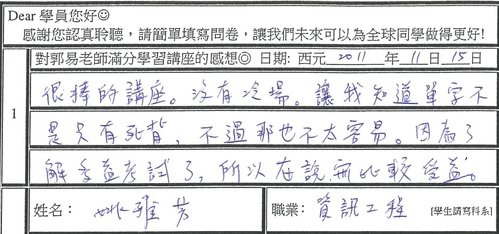 Dear 學員您好☺
感謝您認真聆聽，請簡單填寫問卷，讓我們未來可以為全球同學做得更好!
對郭易老師滿分學習講座的感想☺ 日期: 西元 2011 年 11 日 15 日
1
很棒的講座。沒有冷場。讓我知道單字不
是只有死背，不過那也不太容易。因為了
解多益考試了，所以在說 比較受益。
姓名： 姚雅芳
職業： 資訊工程 [學生請寫科系]